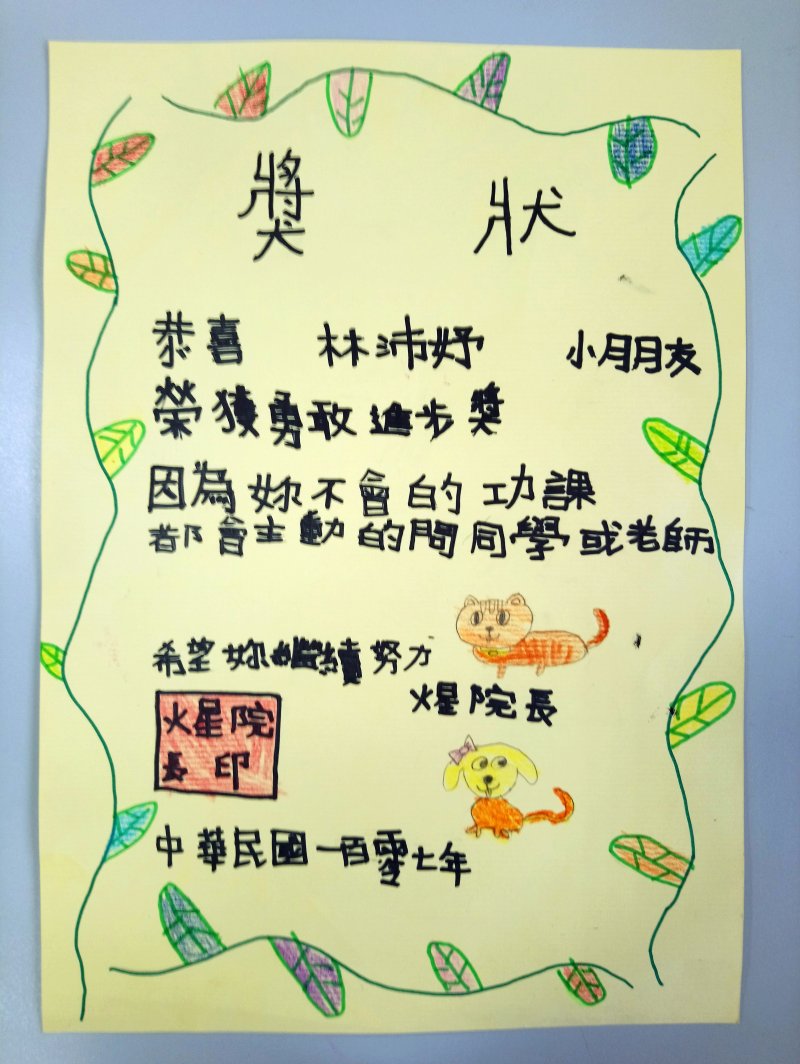 獎 狀
恭喜 林沛妤 小朋友
榮獲勇敢進步獎
因為妳不會的功課
都會主動的問同學或老師
希望妳繼續努力
火星院長
火星院
長印
中華民國一百零七年